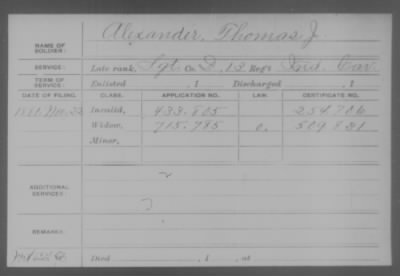 NAME OF SOLDIER: Alexander, Thomas J.
SERVICE: Late rank, Sgt Co. D, 13 Reg't Cav.
TERM OF SERVICE: Enlisted , 1 Discharged , 1
DATE OF FILING. CLASS. APPLICATION NO. LAW. CERTIFICATE NO.
1881, Nov. 22 Invalid, 433.805 254.706
Widow, 715.785 509.831
Minor,
ADDITIONAL SERVICES:
REMARKS:
Died , 1 , at